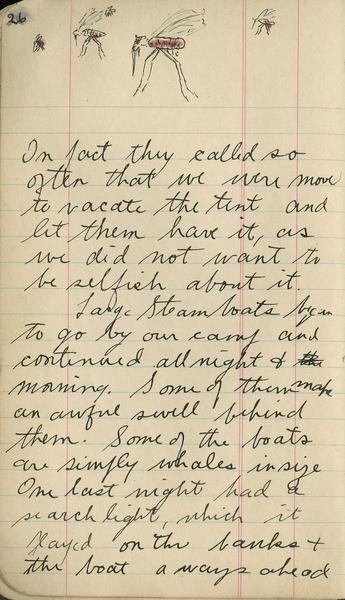 26
In fact they called so
often that we were move
to vacate the tent and
let them have it, as
we did not want to
be selfish about it.
Large Steamboats began
to go by our camp and
continued all night & the
morning. Some of them make
an awful swell behind
them. Some of the boats
are simply whales in size
One last night had a
search light, which it
played on the banks +
the boat a ways ahead